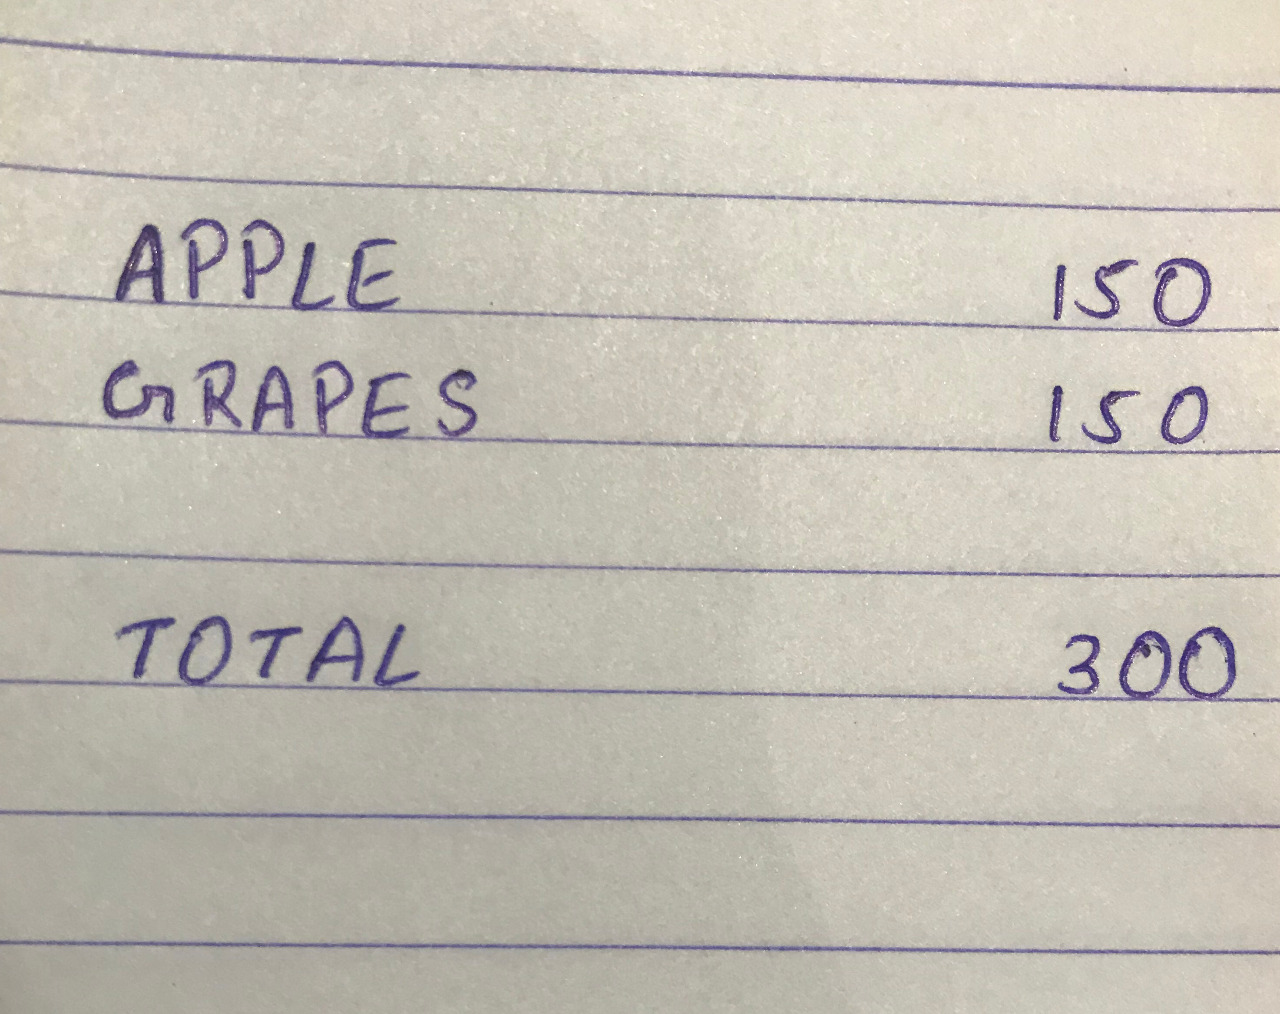 APPLE 150
GRAPES 150
TOTAL 300